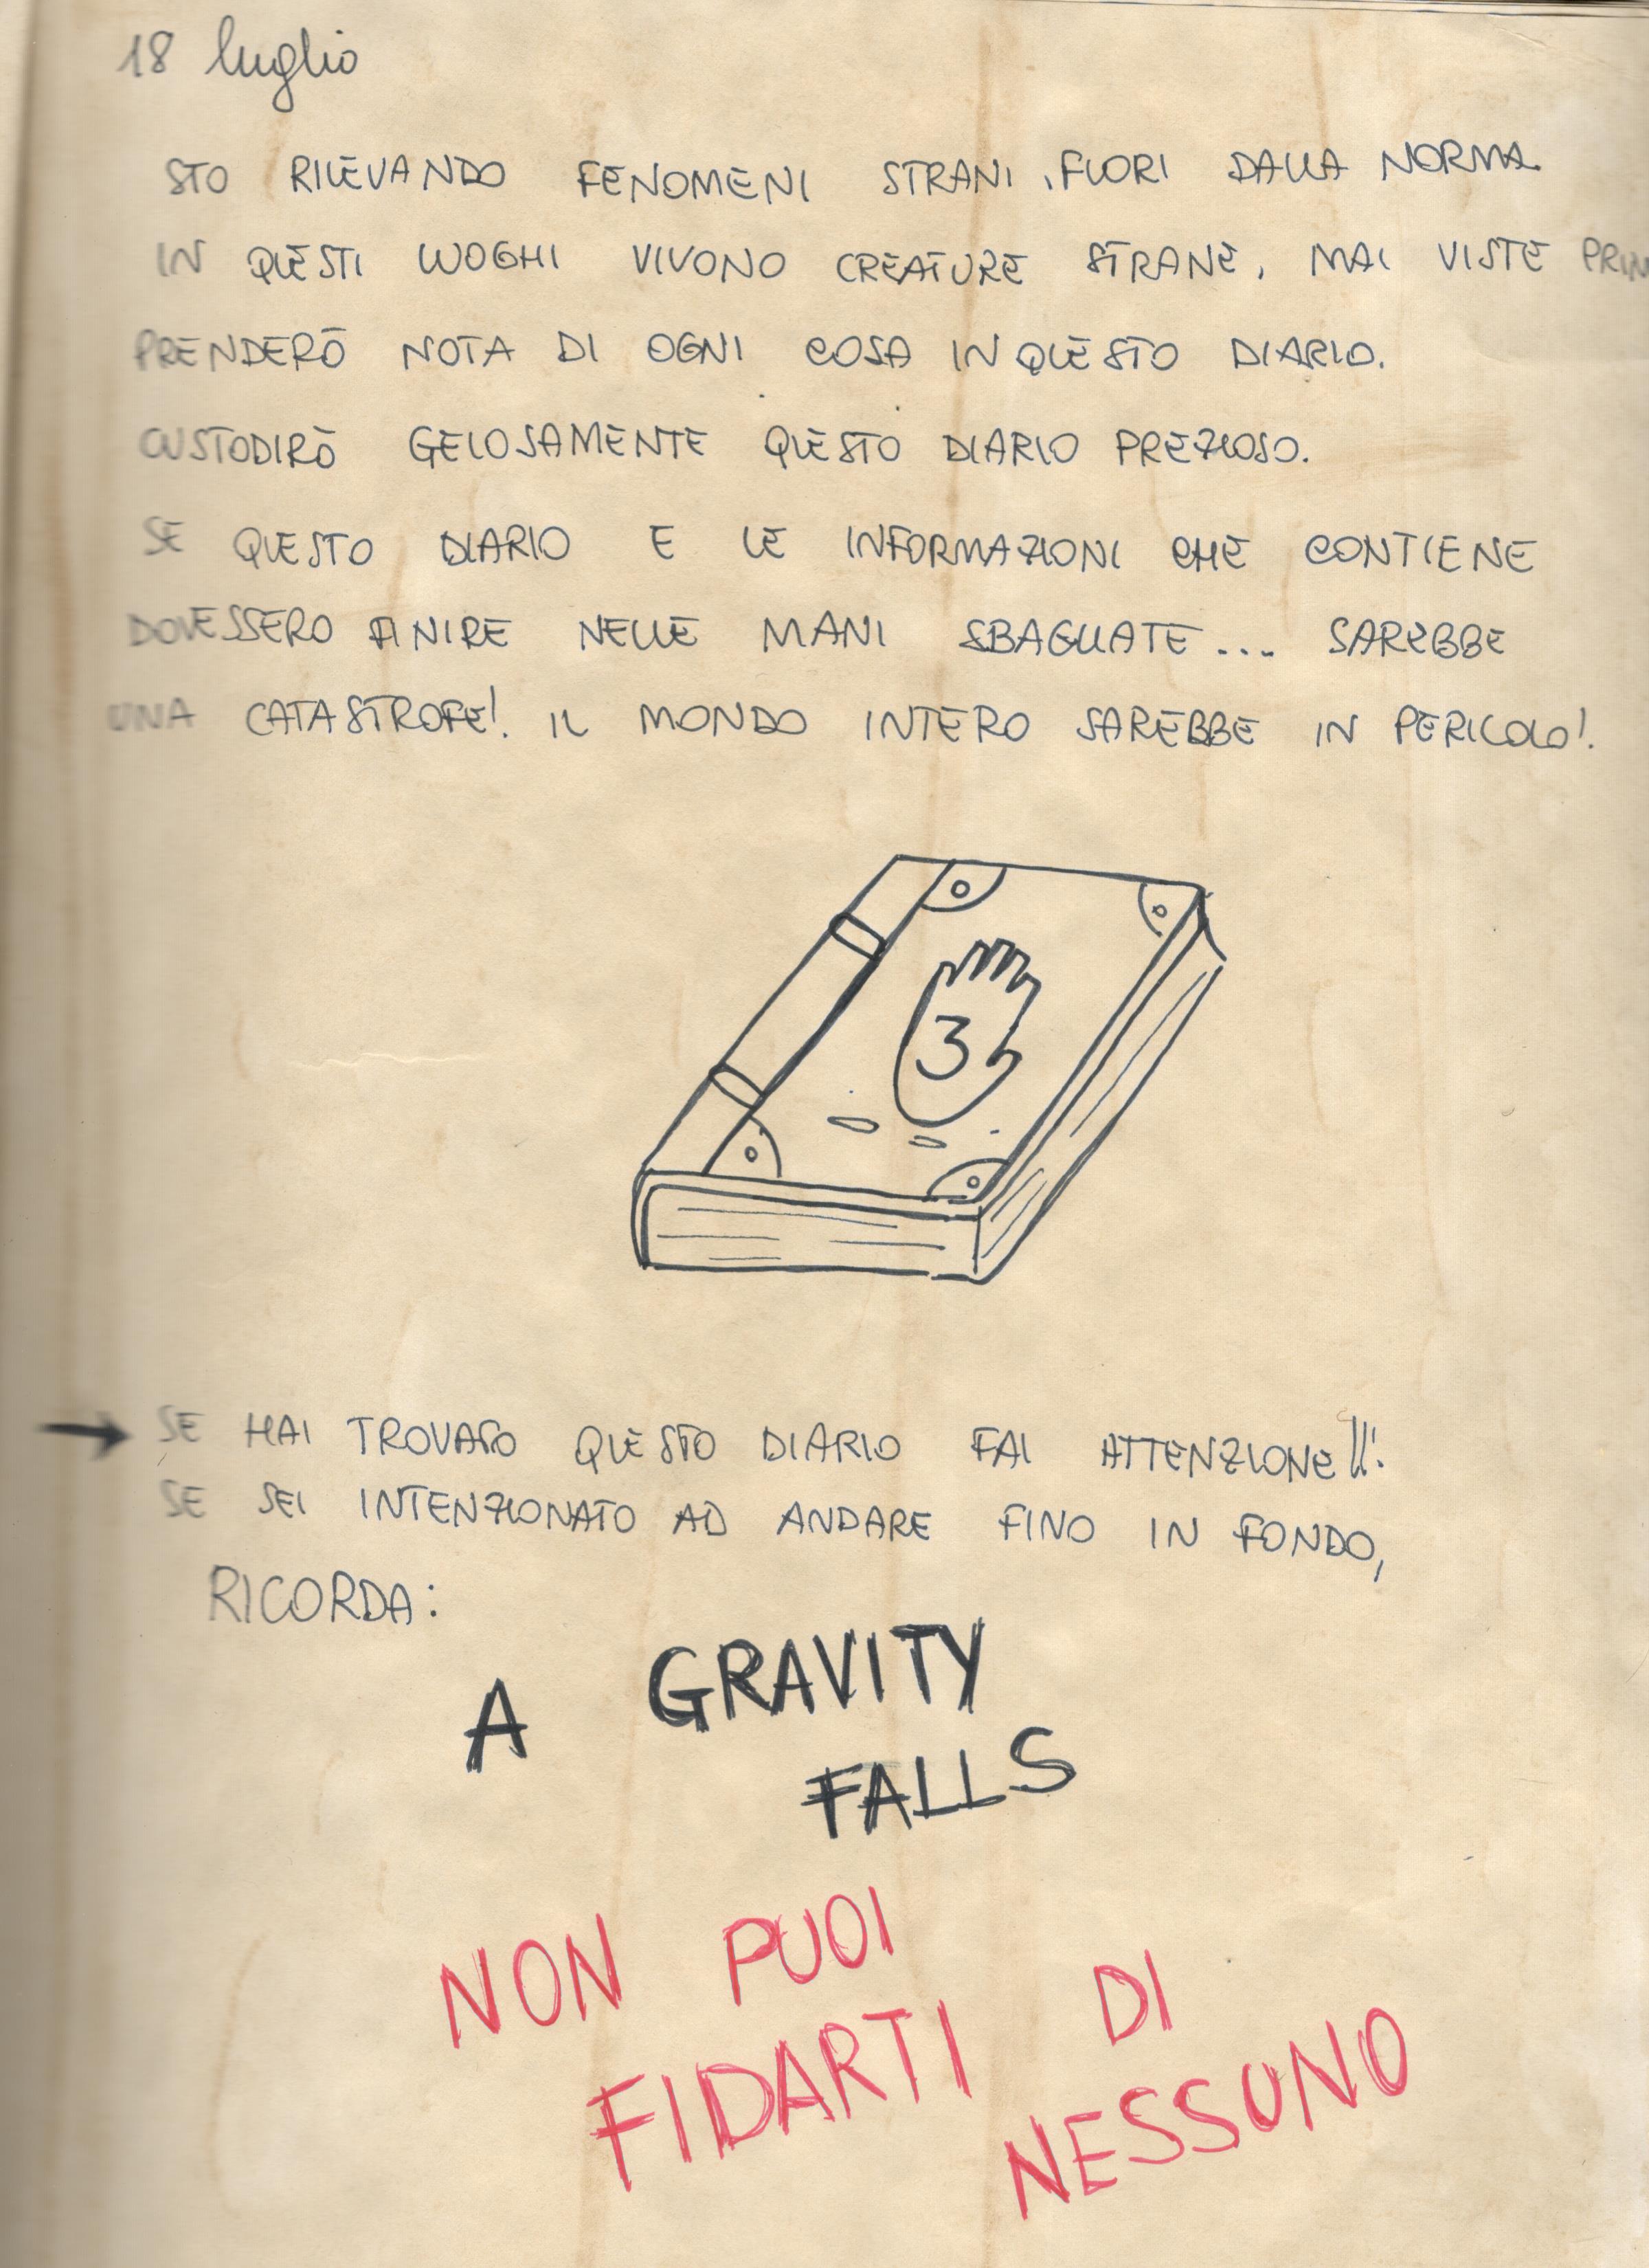 18 luglio
STO RILEVANDO FENOMENI STRANI, FUORI DALLA NORMA.
IN QUESTI LUOGHI VIVONO CREATURE STRANE, MAI VISTE PRIM
PRENDERÒ NOTA DI OGNI COSA IN QUESTO DIARIO.
CUSTODIRÒ GELOSAMENTE QUESTO DIARIO PREZIOSO.
SE QUESTO DIARIO E LE INFORMAZIONI CHE CONTIENE
DOVESSERO FINIRE NELLE MANI SBAGLIATE... SAREBBE
UNA CATASTROFE! IL MONDO INTERO SAREBBE IN PERICOLO!
3
SE HAI TROVATO QUESTO DIARIO FAI ATTENZIONE!!!
SE SEI INTENZIONATO AD ANDARE FINO IN FONDO,
RICORDA:
A GRAVITY
FALLS
NON PUOI
FIDARTI DI
NESSUNO